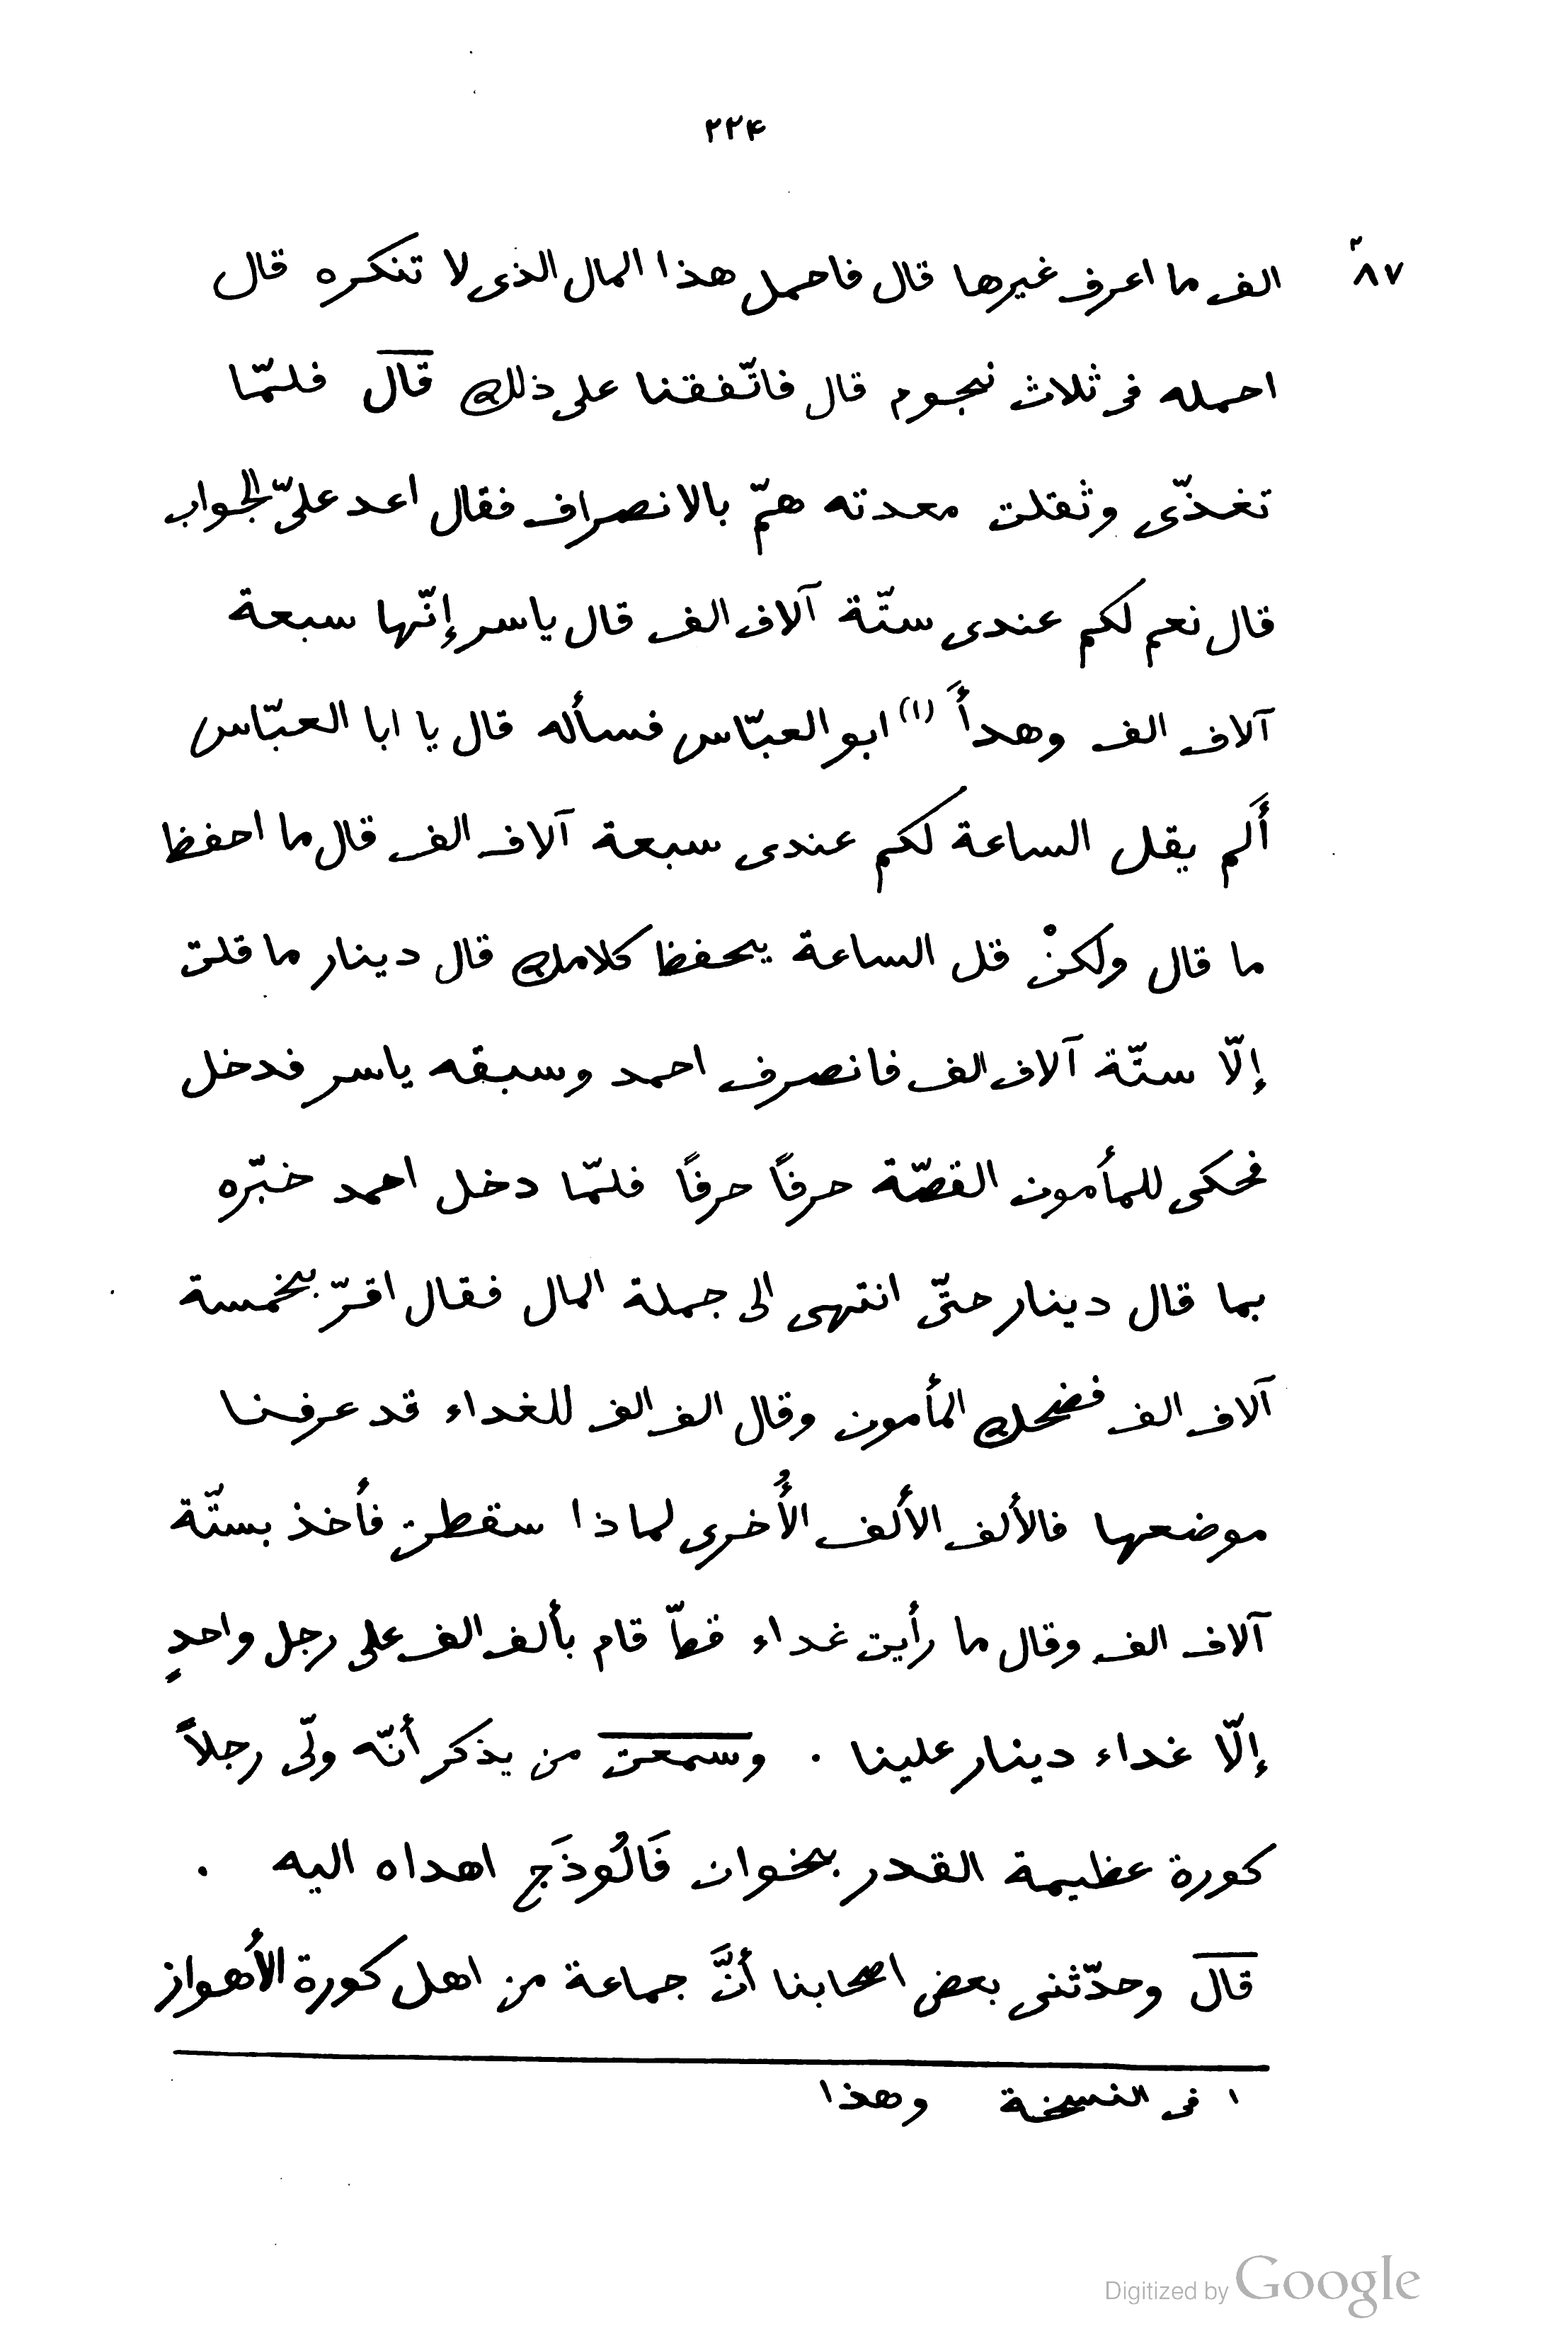 ٢٢۴
٨٧٣ الف ما اعرف غيرها قال فاحمل هذا المال الذى لا تنكره قال
احمله فى ثلاث نجوم قال فاتّفقنا على ذلك قال فلمّا
تغذّى وثقلت معدته همّ بالانصراف فقال اعد علىّ الجواب
قال نعم لكم عندى ستّة آلاف الف قال ياسر إنّها سبعة
آلاف الف وهدأَ (١) ابو العبّاس فسأله قال يا ابا العبّاس
أَلم يقل الساعة لكم عندى سبعة آلاف الف قال ما احفظ
ما قال ولكنْ قل الساعة يحفظ كلامك قال دينار ما قلت
إلّا ستّة آلاف الف فانصرف احمد وسبقه ياسر فدخل
فحكى للمأمون القصّة حرفًا حرفًا فلمّا دخل احمد خبّره
بما قال دينار حتّى انتهى الى جملة المال فقال اقرّ بخمسة
آلاف الف فضحك المأمون وقال الف الف للغداء قد عرفنا
موضعها فالألف الألف الأُخرى لماذا سقطت فأخذ بستّة
آلاف الف وقال ما رأيت غداء قطّ قام بألف الف على رجل واحدٍ
إلّا غداء دينار علينا . وسمعت من يذكر أنّه ولّى رجلاً
كورة عظيمة القدر بخوان فَالُوذَج اهداه اليه .
قال وحدّثنى بعض اصحابنا أنَّ جماعة من اهل كورة الأهواز
١ فى النسخة وهذا
Digitized by Google